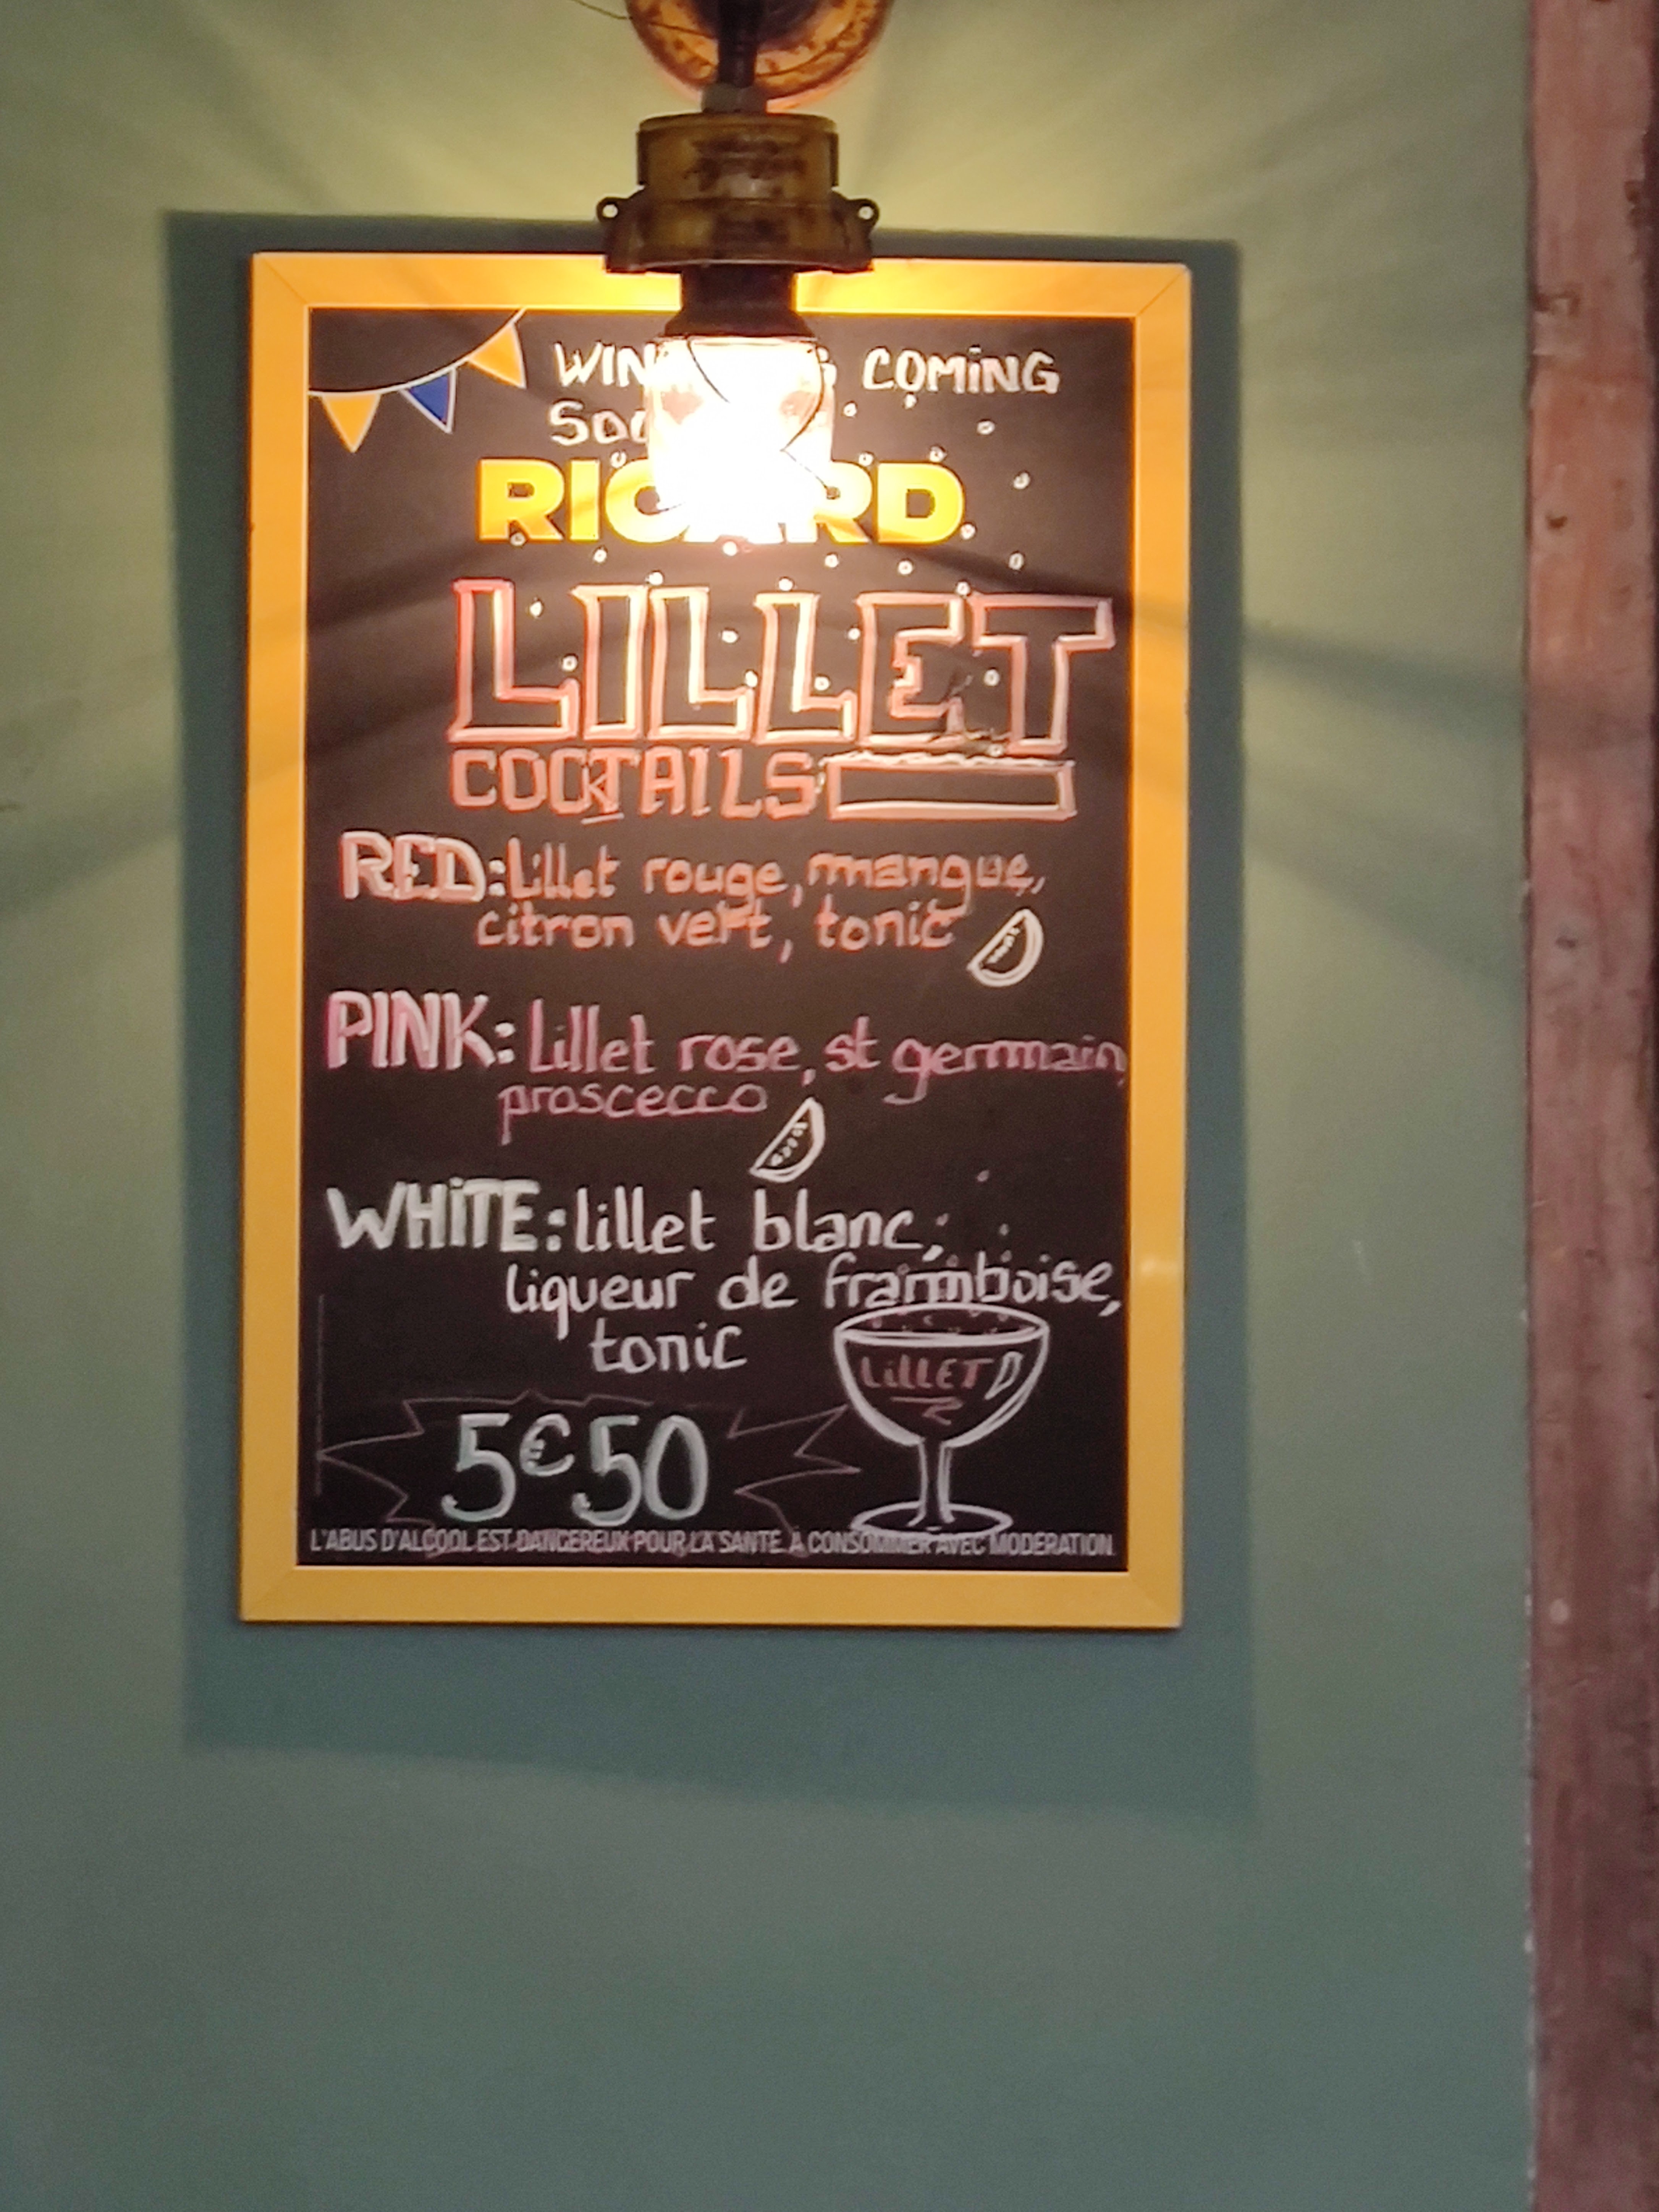 COMING
RICARD
LILLET
COCKTAILS
RED: Lillet rouge, mangue,
citron vert, tonic
PINK: Lillet rose, st germain,
proscecco
WHiTE: lillet blanc,
liqueur de framboise,
tonic
LiLLET
5€50
L'ABUS D'ALCOOL EST DANGEREUX POUR LA SANTÉ. À CONSOMMER AVEC MODÉRATION.